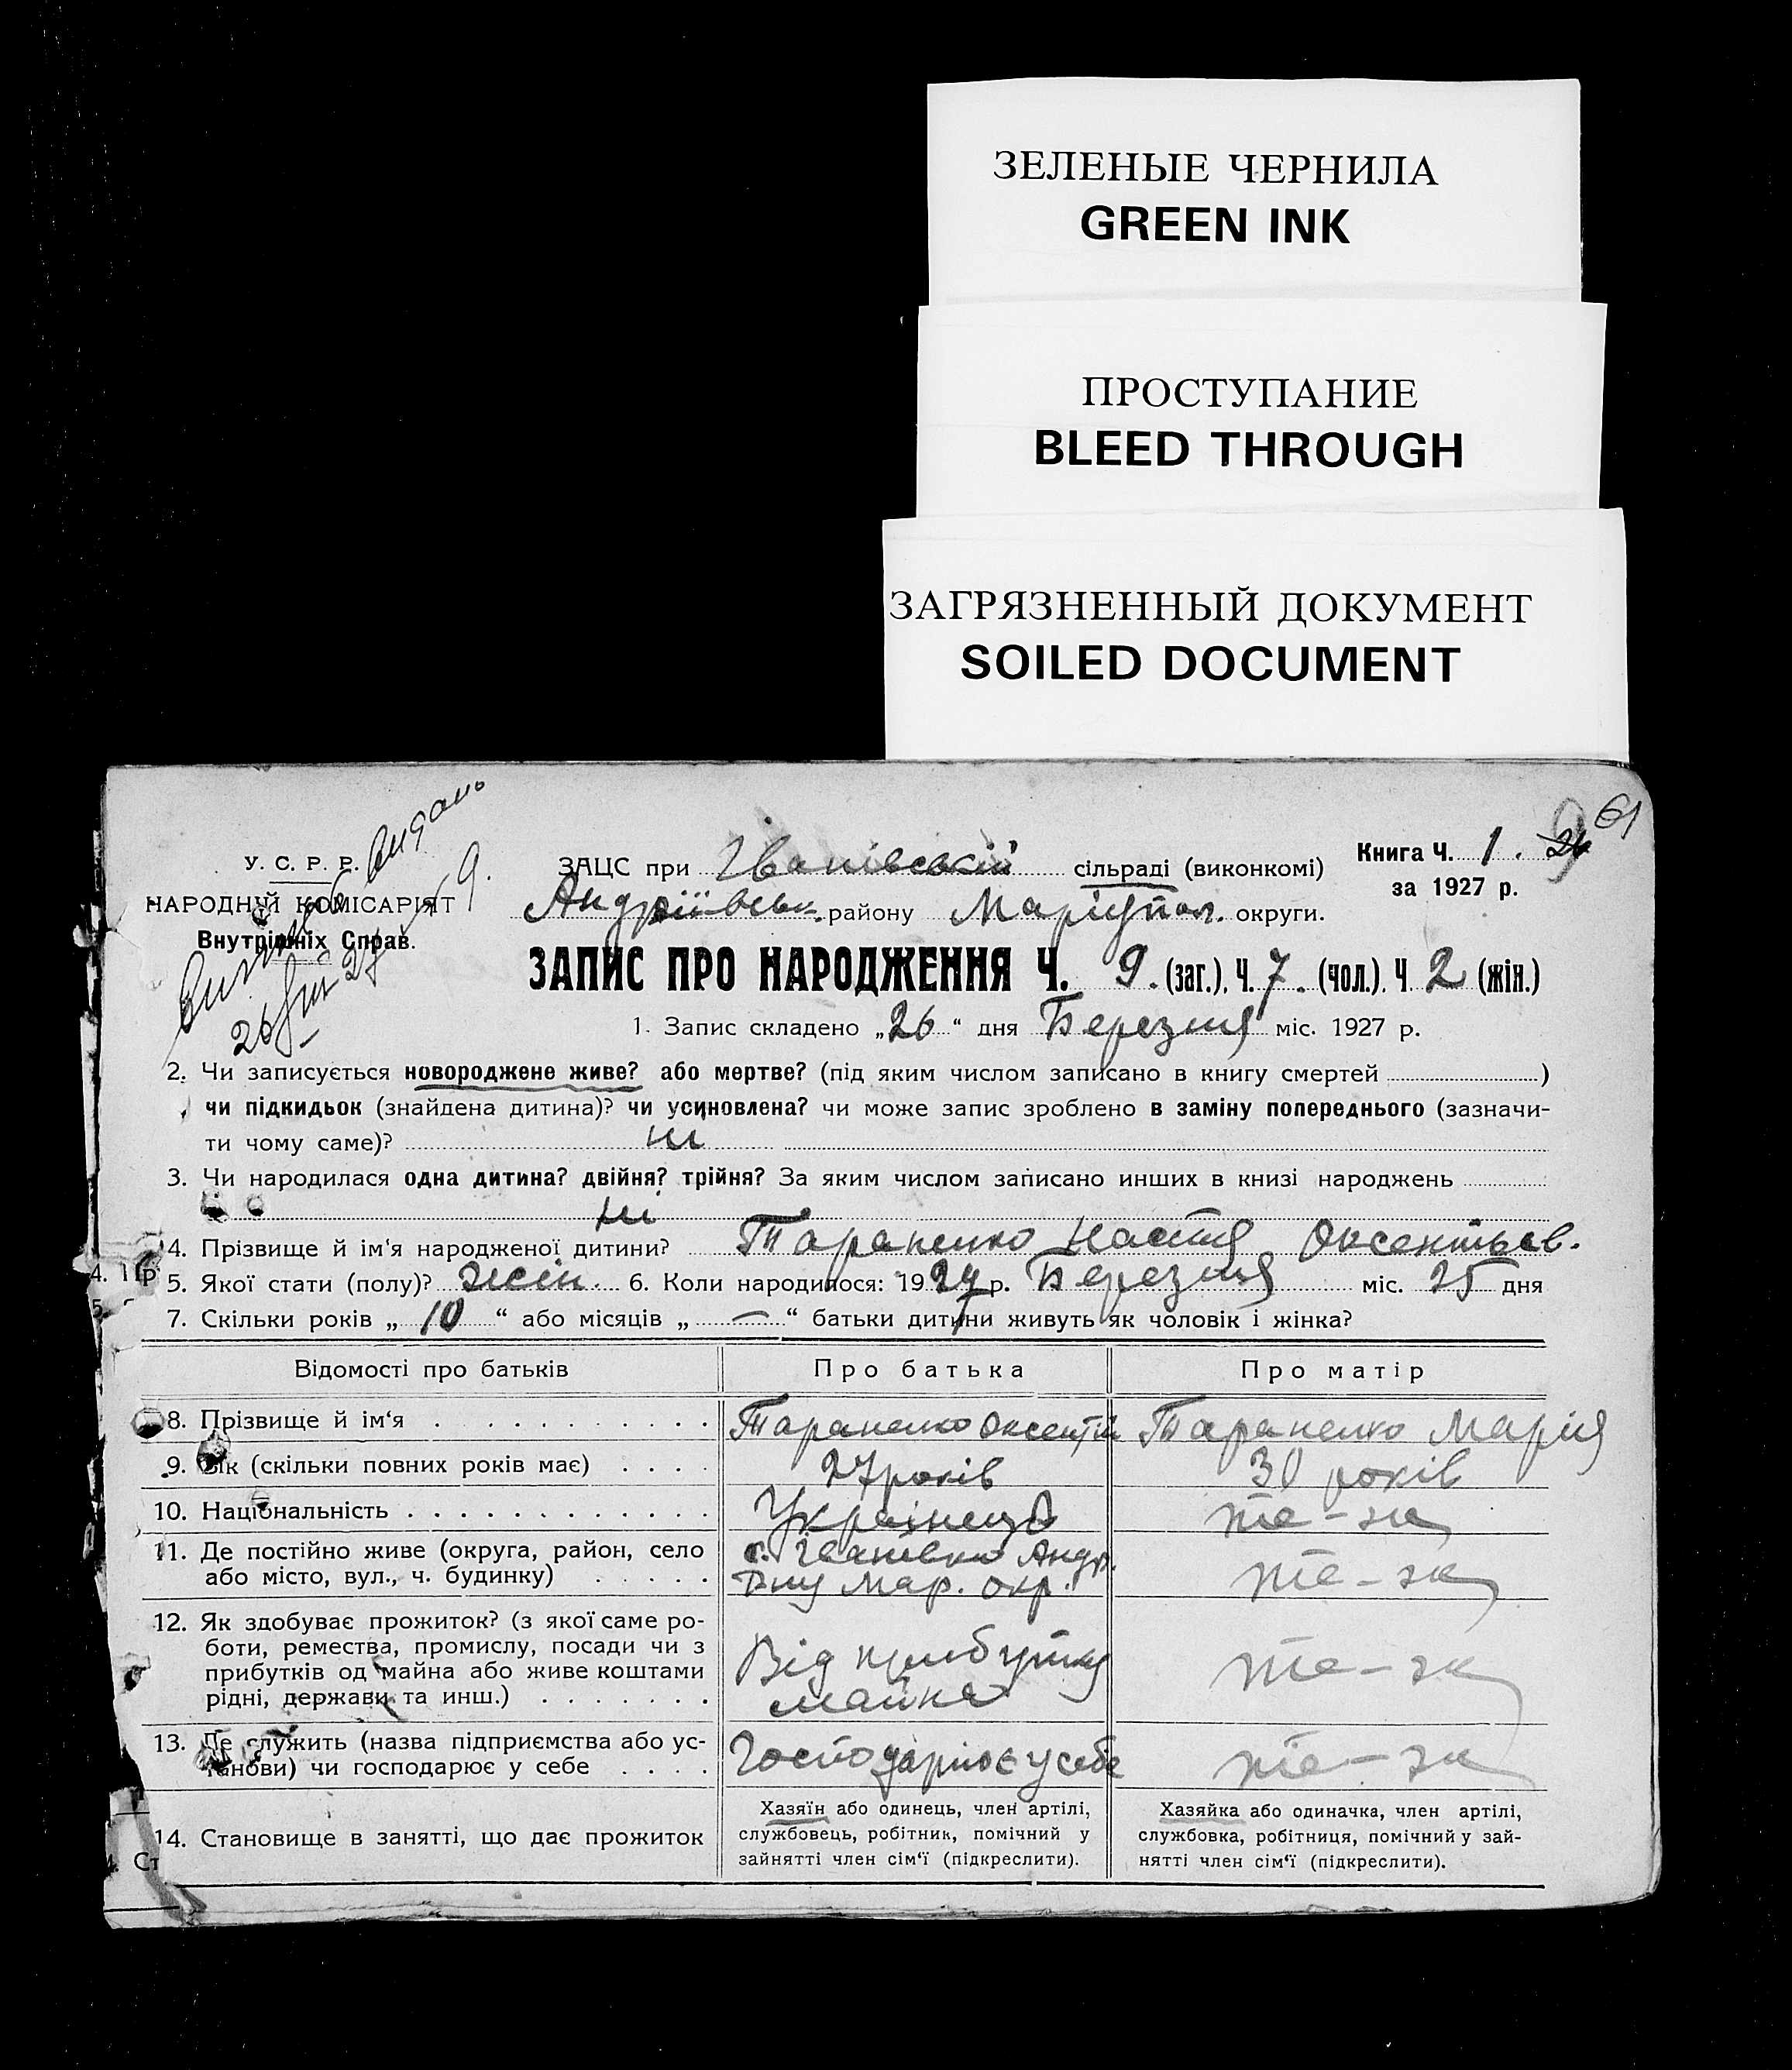 ЗЕЛЕНЫЕ ЧЕРНИЛА
GREEN INK
ПРОСТУПАНИЕ
BLEED THROUGH
ЗАГРЯЗНЕННЫЙ ДОКУМЕНТ
SOILED DOCUMENT
61
У. С. Р. Р.
НАРОДНИЙ КОМІСАРІЯТ
Внутрішніх Справ.
ЗАЦС при Іванівській сільраді (виконкомі)
Андріївськ. району Маріупол. округи.
Книга Ч. 1.
за 1927 р.
ЗАПИС ПРО НАРОДЖЕННЯ Ч. 9. (заг.). Ч. 7. (чол.). Ч. 2 (жін.)
1. Запис складено „26“ дня Березня міс. 1927 р.
2. Чи записується новороджене живе? або мертве? (під яким числом записано в книгу смертей )
чи підкидьок (знайдена дитина)? чи усиновлена? чи може запис зроблено в заміну попереднього (зазначи-
ти чому саме)? ні
3. Чи народилася одна дитина? двійня? трійня? За яким числом записано инших в книзі народжень
ні
4. Прізвище й ім‘я народженої дитини? Тараненко Настя Оксентьєв.
5. Якої стати (полу)? жін. 6. Коли народилося: 1927 р. Березня міс. 25 дня
7. Скільки років „ 10 “ або місяців „ — “ батьки дитини живуть як чоловік і жінка?
Відомості про батьків Про батька Про матір
8. Прізвище й ім‘я Тараненко Оксентій Тараненко Марія
9. Вік (скільки повних років має) 27 років 30 років
10. Національність Українець те-ж
11. Де постійно живе (округа, район, село с. Іванівка Андр.
або місто, вул., ч. будинку) Мар. окр. те-ж
12. Як здобуває прожиток? (з якої саме ро-
боти, ремества, промислу, посади чи з Від прибутку
прибутків од майна або живе коштами майна те-ж
рідні, держави та инш.)
13. Де служить (назва підприємства або ус- Господарює у себе те-ж
танови) чи господарює у себе
14. Становище в занятті, що дає прожиток
Хазяїн або одинець, член артілі,
службовець, робітник, помічний у
зайнятті член сім‘ї (підкреслити).
Хазяйка або одиначка, член артілі,
службовка, робітниця, помічний у зай-
нятті член сім‘ї (підкреслити).